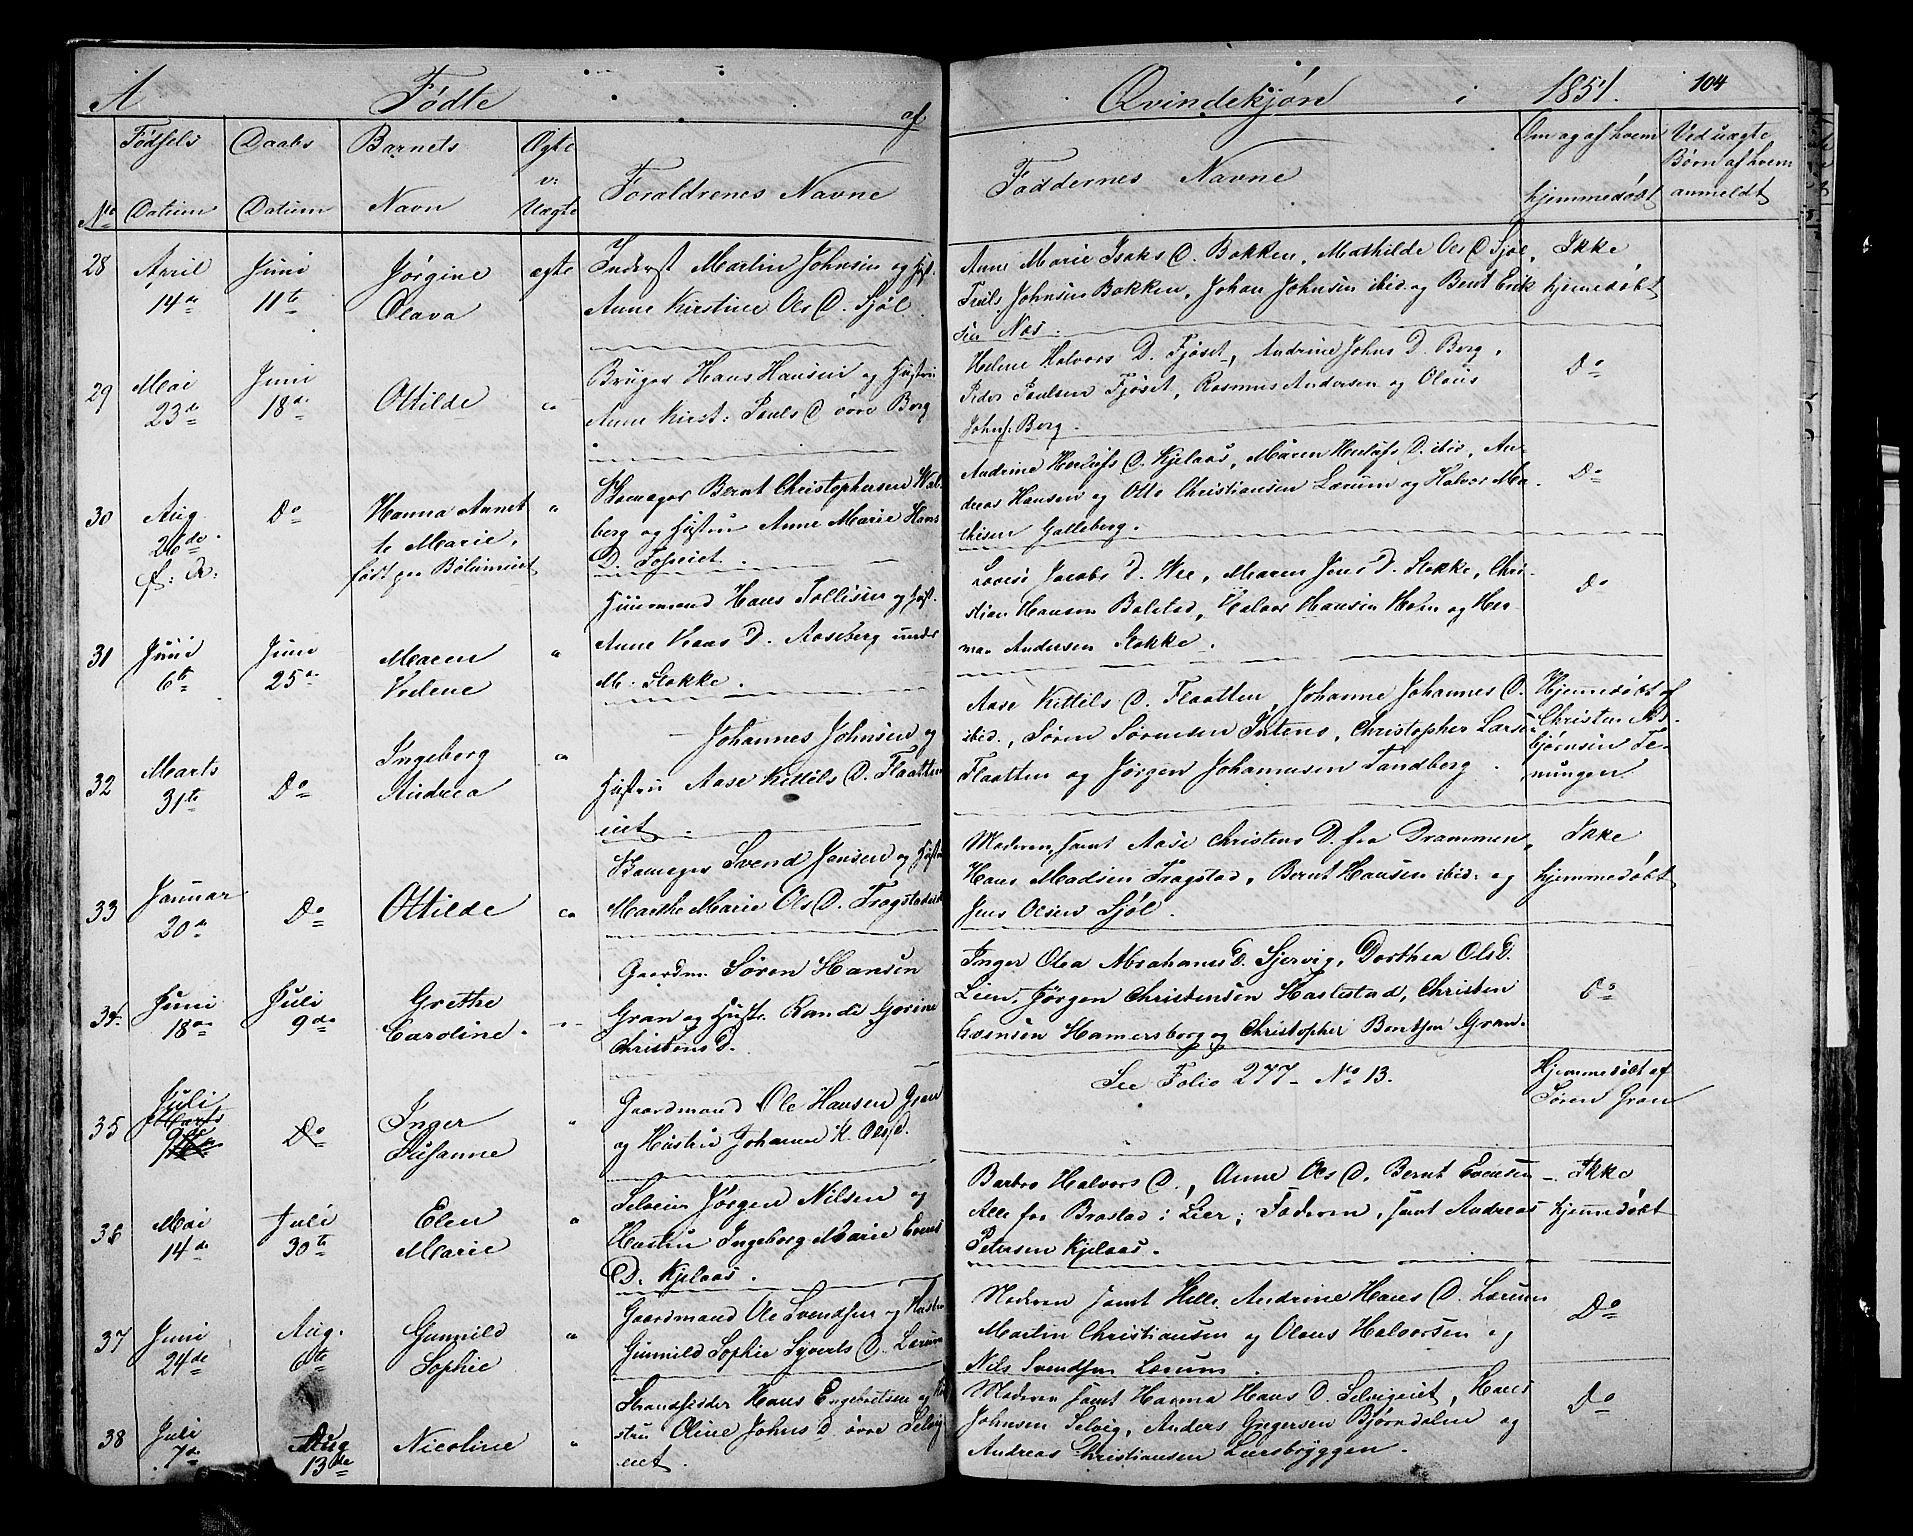 A Fødte af Qvindekjøn i 1851. 104
No Fødsels Datum Daabs Datum Barnets Navn Ægte v: Uægte Forældrenes Navne Faddernes Navne Om og af hvem hjemmedøbt Ved uægte Børn af hvem anmeldt
28 April 14de Juni 11te Jørgine Olava ægte
Inderst Martin Johnsen og Hust.
Anne Kirstine Ols D. Sjøl.
Anne Marie Isaks D. Bakken, Mathilde Ols D. Sjøl,
Truls Johnsen Bakken, Johan Johnsen ibid. og Bent Erik
sen Næs.
Ikke
hjemmedøbt
29 Mai 23de Juni 18de Ottilde
Bruger Hans Hansen og Hustru
Anne Kirst: Pauls D. øvre Berg
Helene Halvors D. Fjøset, Andrine Johns D. Berg,
Peder Paulsen Fjøset, Rasmus Andersen og Olaus
Johns. Berg.
Do
30 Aug 26de f: A: Do
Hanna Annet
te Marie,
født paa Bølerniet
Bernt Christophersen
berg og Hustru Anne Marie Hans
D.
Andrine Herlufs D. Kjelaas, Maren Herlufs D. ibid, An-
dreas Hansen og Otto Christiansen Lærum og Halvor Ma-
thisen Galleberg.
Do
31 Juni 6te Juni 25de Maren
Huusmand Hans Tollefsen og Hust.
Anne Hans D. Aaseberg under
M. Stokke.
Lovise Jacobs D. Wee, Maren Jens D. Stokke, Chri-
stian Hansen Bolstad, Halvor Hansen Holm og Her-
man Andersen Stokke.
Do
32 Marts 31te Do Ingeborg Andrea
Johannes Johnsen og
Hustru Aase Kittils D. Flaatten
iet.
Aase Kittils D. Flaatten Johanne Johannes D.
ibid., Søren Sørensen Christopher Larsen
Flaatten og Jørgen Johannesen Tandberg.
Hjemmedøbt af
Christen As-
bjørnsen Te-
mungen
33 Januar 20de Do Ottilde
Svend Jensen og Hustru
Marthe Marie Ols D. Fragstadeiet
Moderen, samt Aase Christens D. fra Drammen,
Hans Madsen Fragstad, Bernt Hansen ibid. og
Jens Olsen Sjøl.
Ikke
hjemmedøbt
34. Juni 18de Juli 9de Grethe Caroline.
Gaardm. Søren Hansen
Gran og Hustr. Randi Gorine
Christens D.
Inger Olea Abrahams D. Sjervig, Dorthea Ols D.
Lien, Jørgen Christensen Hastestad, Christen
Evensen Hamersborg og Christopher Bentsen Gran.
Do
35 Juli 9de Do Inger Susanne
Gaardmand Ole Hansen Gran
og Hustru Johanne K. Olsd.
See Folio 277 - No 13.
Hjemmedøbt af
Søren Gran
36 Mai 14de Juli 30te Elen Marie
Selveier Jørgen Nilsen og
Hustru Ingeborg Marie Evens
D. Kjelaas.
Barbro Halvors D., Anne Ols D. Bernt Evensen
Alle fra Brastad i Lier, Faderen, samt Andreas
Petersen Kjelaas.
Ikke
hjemmedøbt
37 Juni 24de Aug. 6te Gunnild Sophie
Gaardmand Ole Svendsen og Hustru
Gunnild Sophie Syverts D. Lærum
Moderen samt Helle Andrine Hans D. Lærum
Martin Christiansen og Olaus Halvorsen og
Nils Svendsen Lærum.
Do
38 Juli 7de Aug 13de Nicoline
Strandsidder Hans Engebretsen og Hu
stru Oline Johns D. øvre Selvig
eiet.
Moderen samt Hanna Hans D. Selvigeiet, Hans
Johnsen Selvig, Anders Gregersen Bjørndalen og
Andreas Christiansen Leirsbryggen.
Do